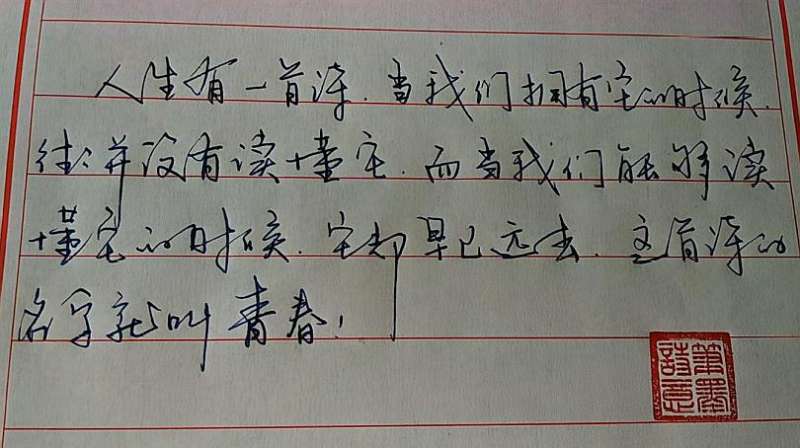 人生有一首诗，当我们拥有它的时候，
往往并没有读懂它，而当我们能够读
懂它的时候，它却早已远去，这首诗的
名字就叫青春！
笔墨
詩意